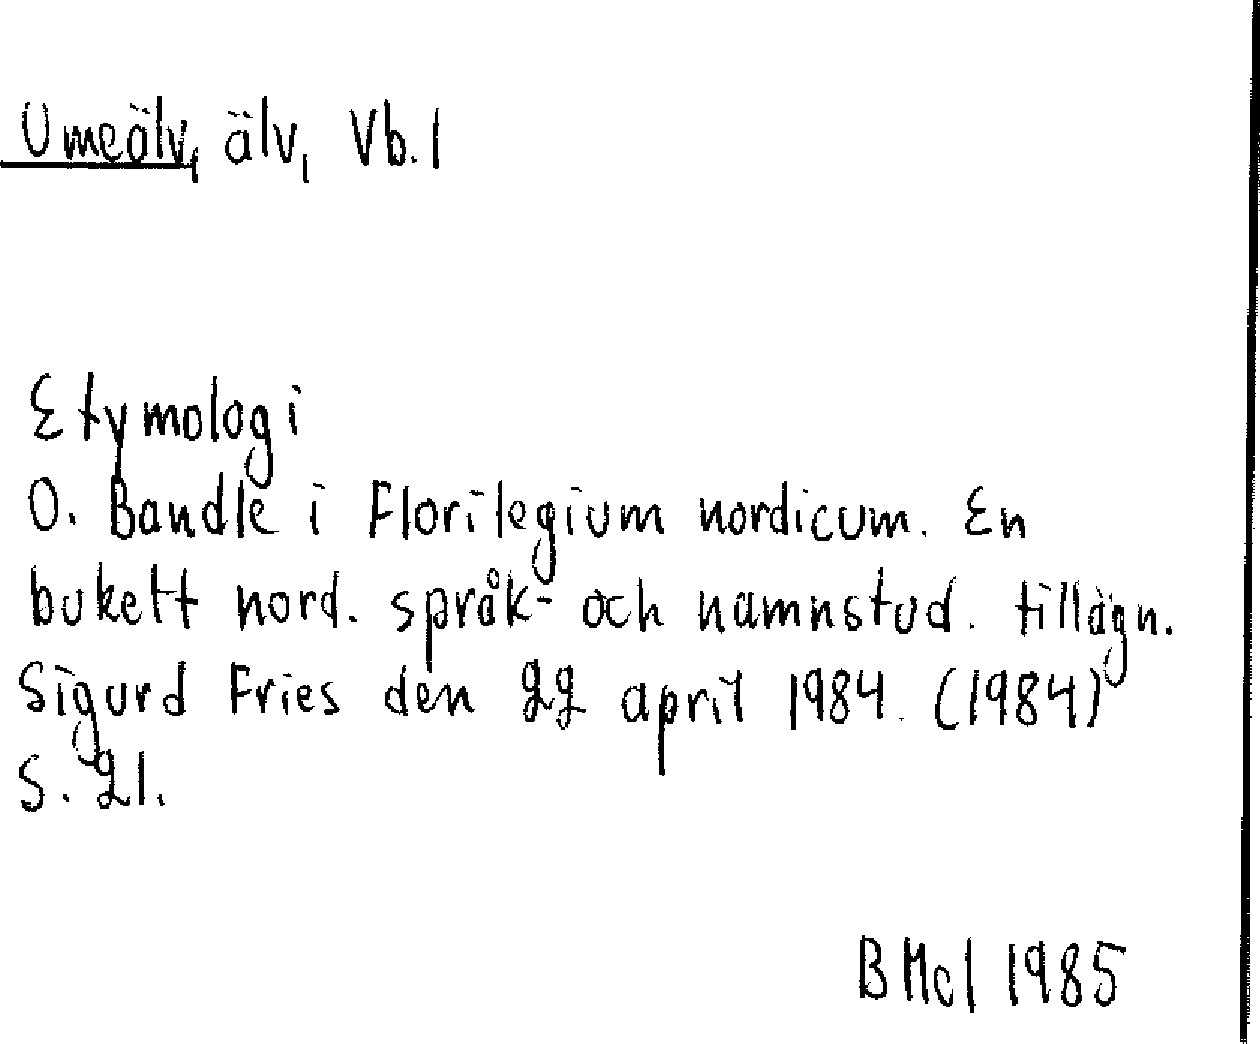 Umeälv, älv, Vb.l
Etymologi
O. Bandle i Florilegium nordicum. En
bukett nord. språk- och namnstud. tillägn.
Sigurd Fries den 22 april 1984. (1984)
S. 21.
BMcl 1985